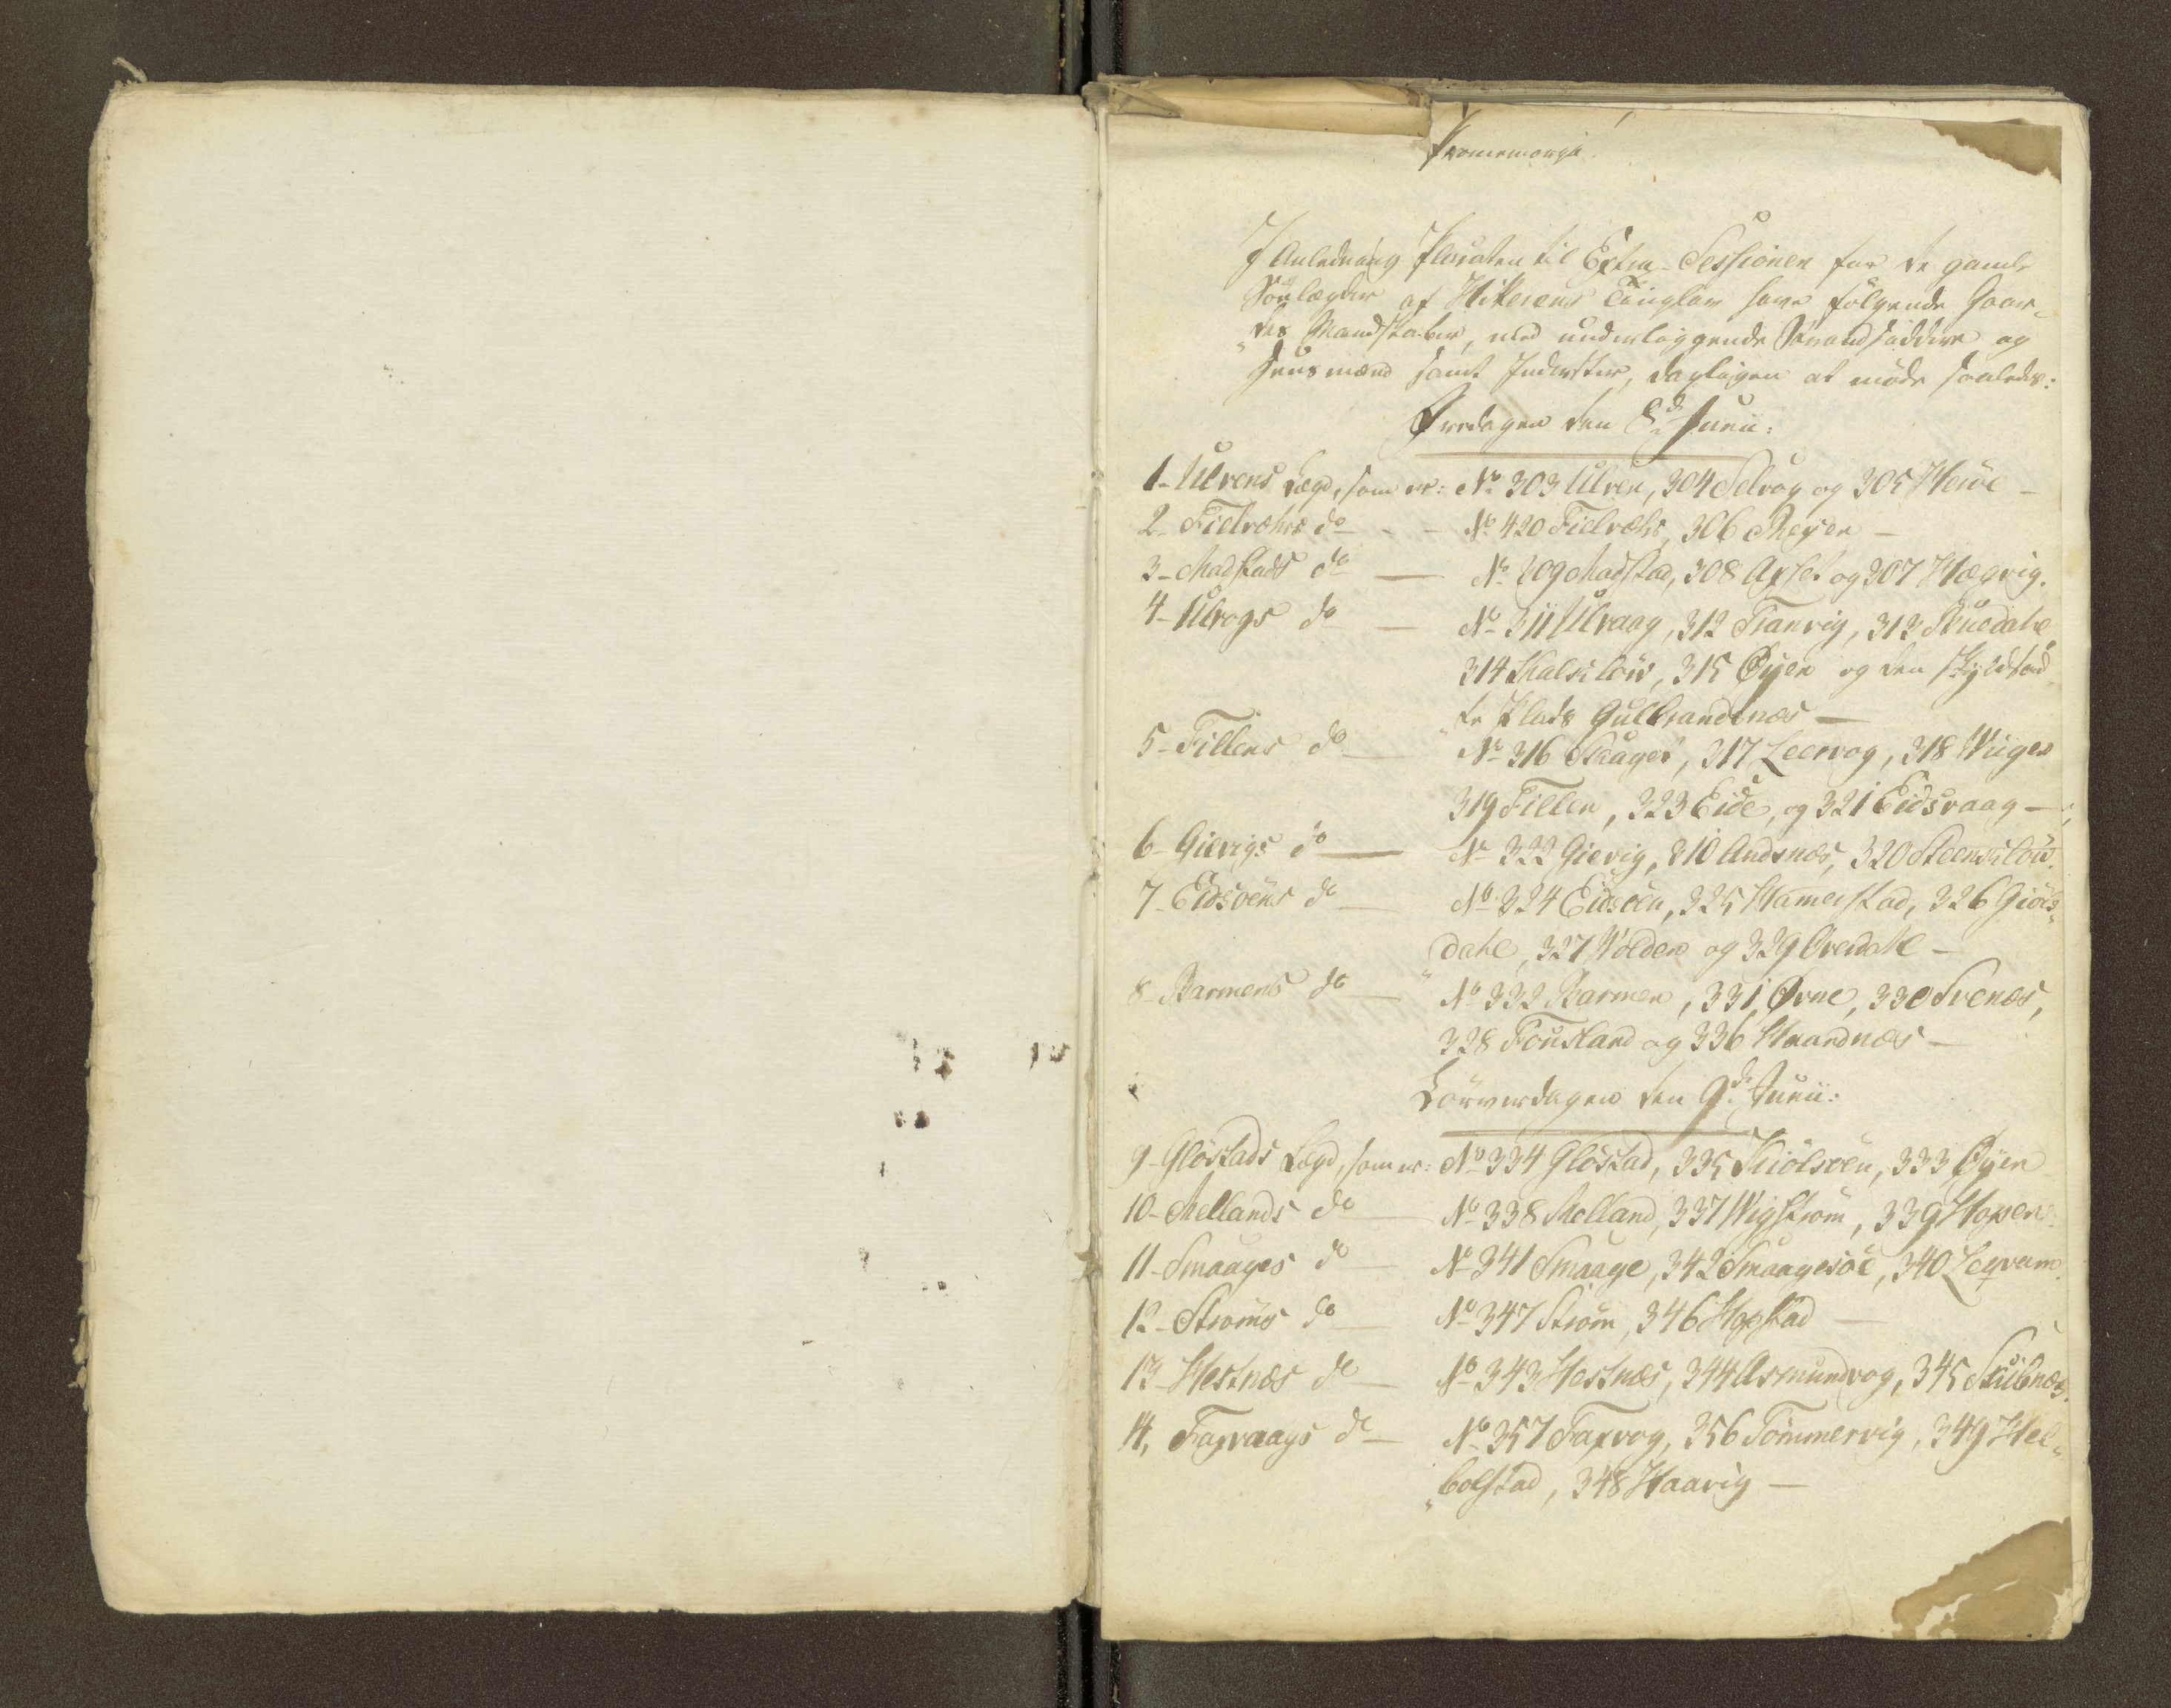 Promemoria
I Anledning Placaten til Extra-Sessionen for de gamle
Söelægder af Hitterens Tinglav have følgende Gaar-
„des Mandskaber, med underliggende Strandsiddere og
Huusmænd samt Inderster, dagligen at møde saaledes:
Fredagen den 8de Junii:
1- Ulvens Lægd, som er: No 303 Ulven, 304 Selvog og 305 Hemöe -
2- Fielværöe do - - No 420 Fielværöe, 306 Meyen -
3- Madstads do — No 309 Madstad, 308 Axset og 307 Hægvig.
4- Ulvogs do — No 311 Ulvaag, 312 Tranvig, 313 Stuedahl
314 Kalsclöv, 315 Øyen og den skyldsad
„te Plads Gulbrandsnæs —
5- Fillens do — No 316 Skaget, 317 Leervog, 318 Wiigen
319 Fillen, 323 Eide, og 321 Eidsvaag —
6- Gievigs do — No 322 Gievig, 310 Andsnæs, 320 Steensclöv.
7- Eidsöens do — No 324 Eidsöen, 325 Hamerstad, 326 Giös-
„dahl, 327 Volden og 329 Overdahl —
8- Barmens do — No 332 Barmen, 331 Ørne, 330 Svenæs,
328 Fousland og 336 Strandnæs —
Löverdagen den 9de Junii:
9- Glöstads Lægd, som er: No 334 Glöstad, 335 Kiölsöen, 333 Øyen
10- Mellands do — No 338 Melland, 337 Wigstrøm, 339 Hopen.
11- Smaages do — No 341 Smaage, 342 Smaagesöe, 340 Leqvam.
12- Ströms do — No 347 Ström, 346 Hopstad —
13- Hestnæs do — No 343 Hestnæs, 344 Asmundvog, 345 Stubnæs.
14, Faxvaags do — No 357 Faxvog, 356 Tömmervig, 349 Hel-
„bolstad, 348 Haavig —